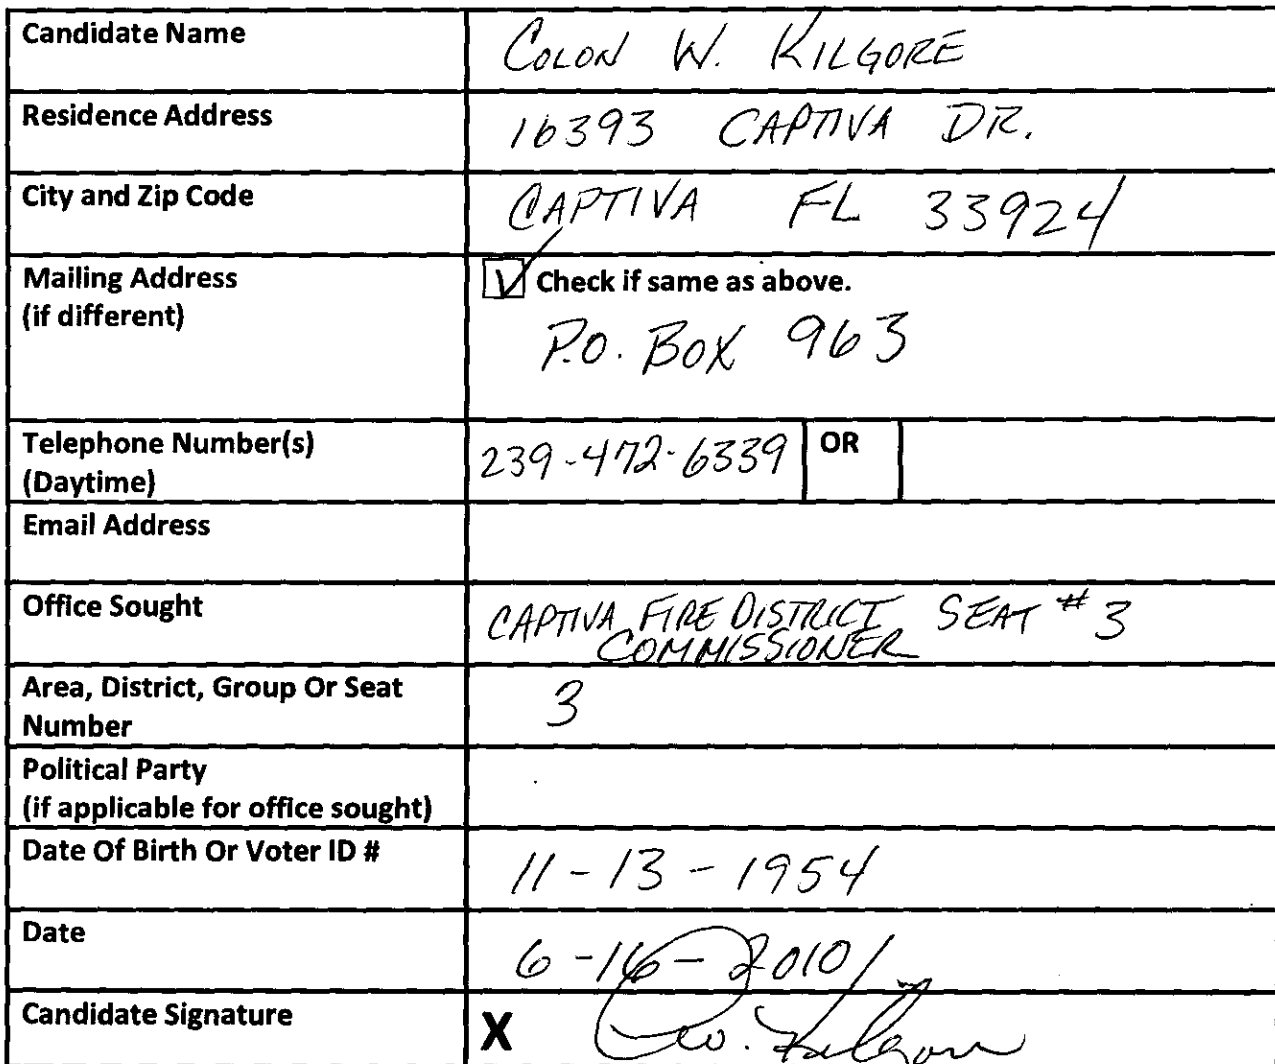 Candidate Name COLON W. KILGORE
Residence Address 16393 CAPTIVA DR.
City and Zip Code CAPTIVA FL 33924
Mailing Address
(if different)
Check if same as above.
P.O. BOX 963
Telephone Number(s)
(Daytime)
239-472-6339 OR
Email Address
Office Sought CAPTIVA FIRE DISTRICT SEAT #3
COMMISSIONER
Area, District, Group Or Seat
Number
3
Political Party
(if applicable for office sought)
Date Of Birth Or Voter ID # 11-13-1954
Date 6-16-2010
Candidate Signature X C W. Kilgore